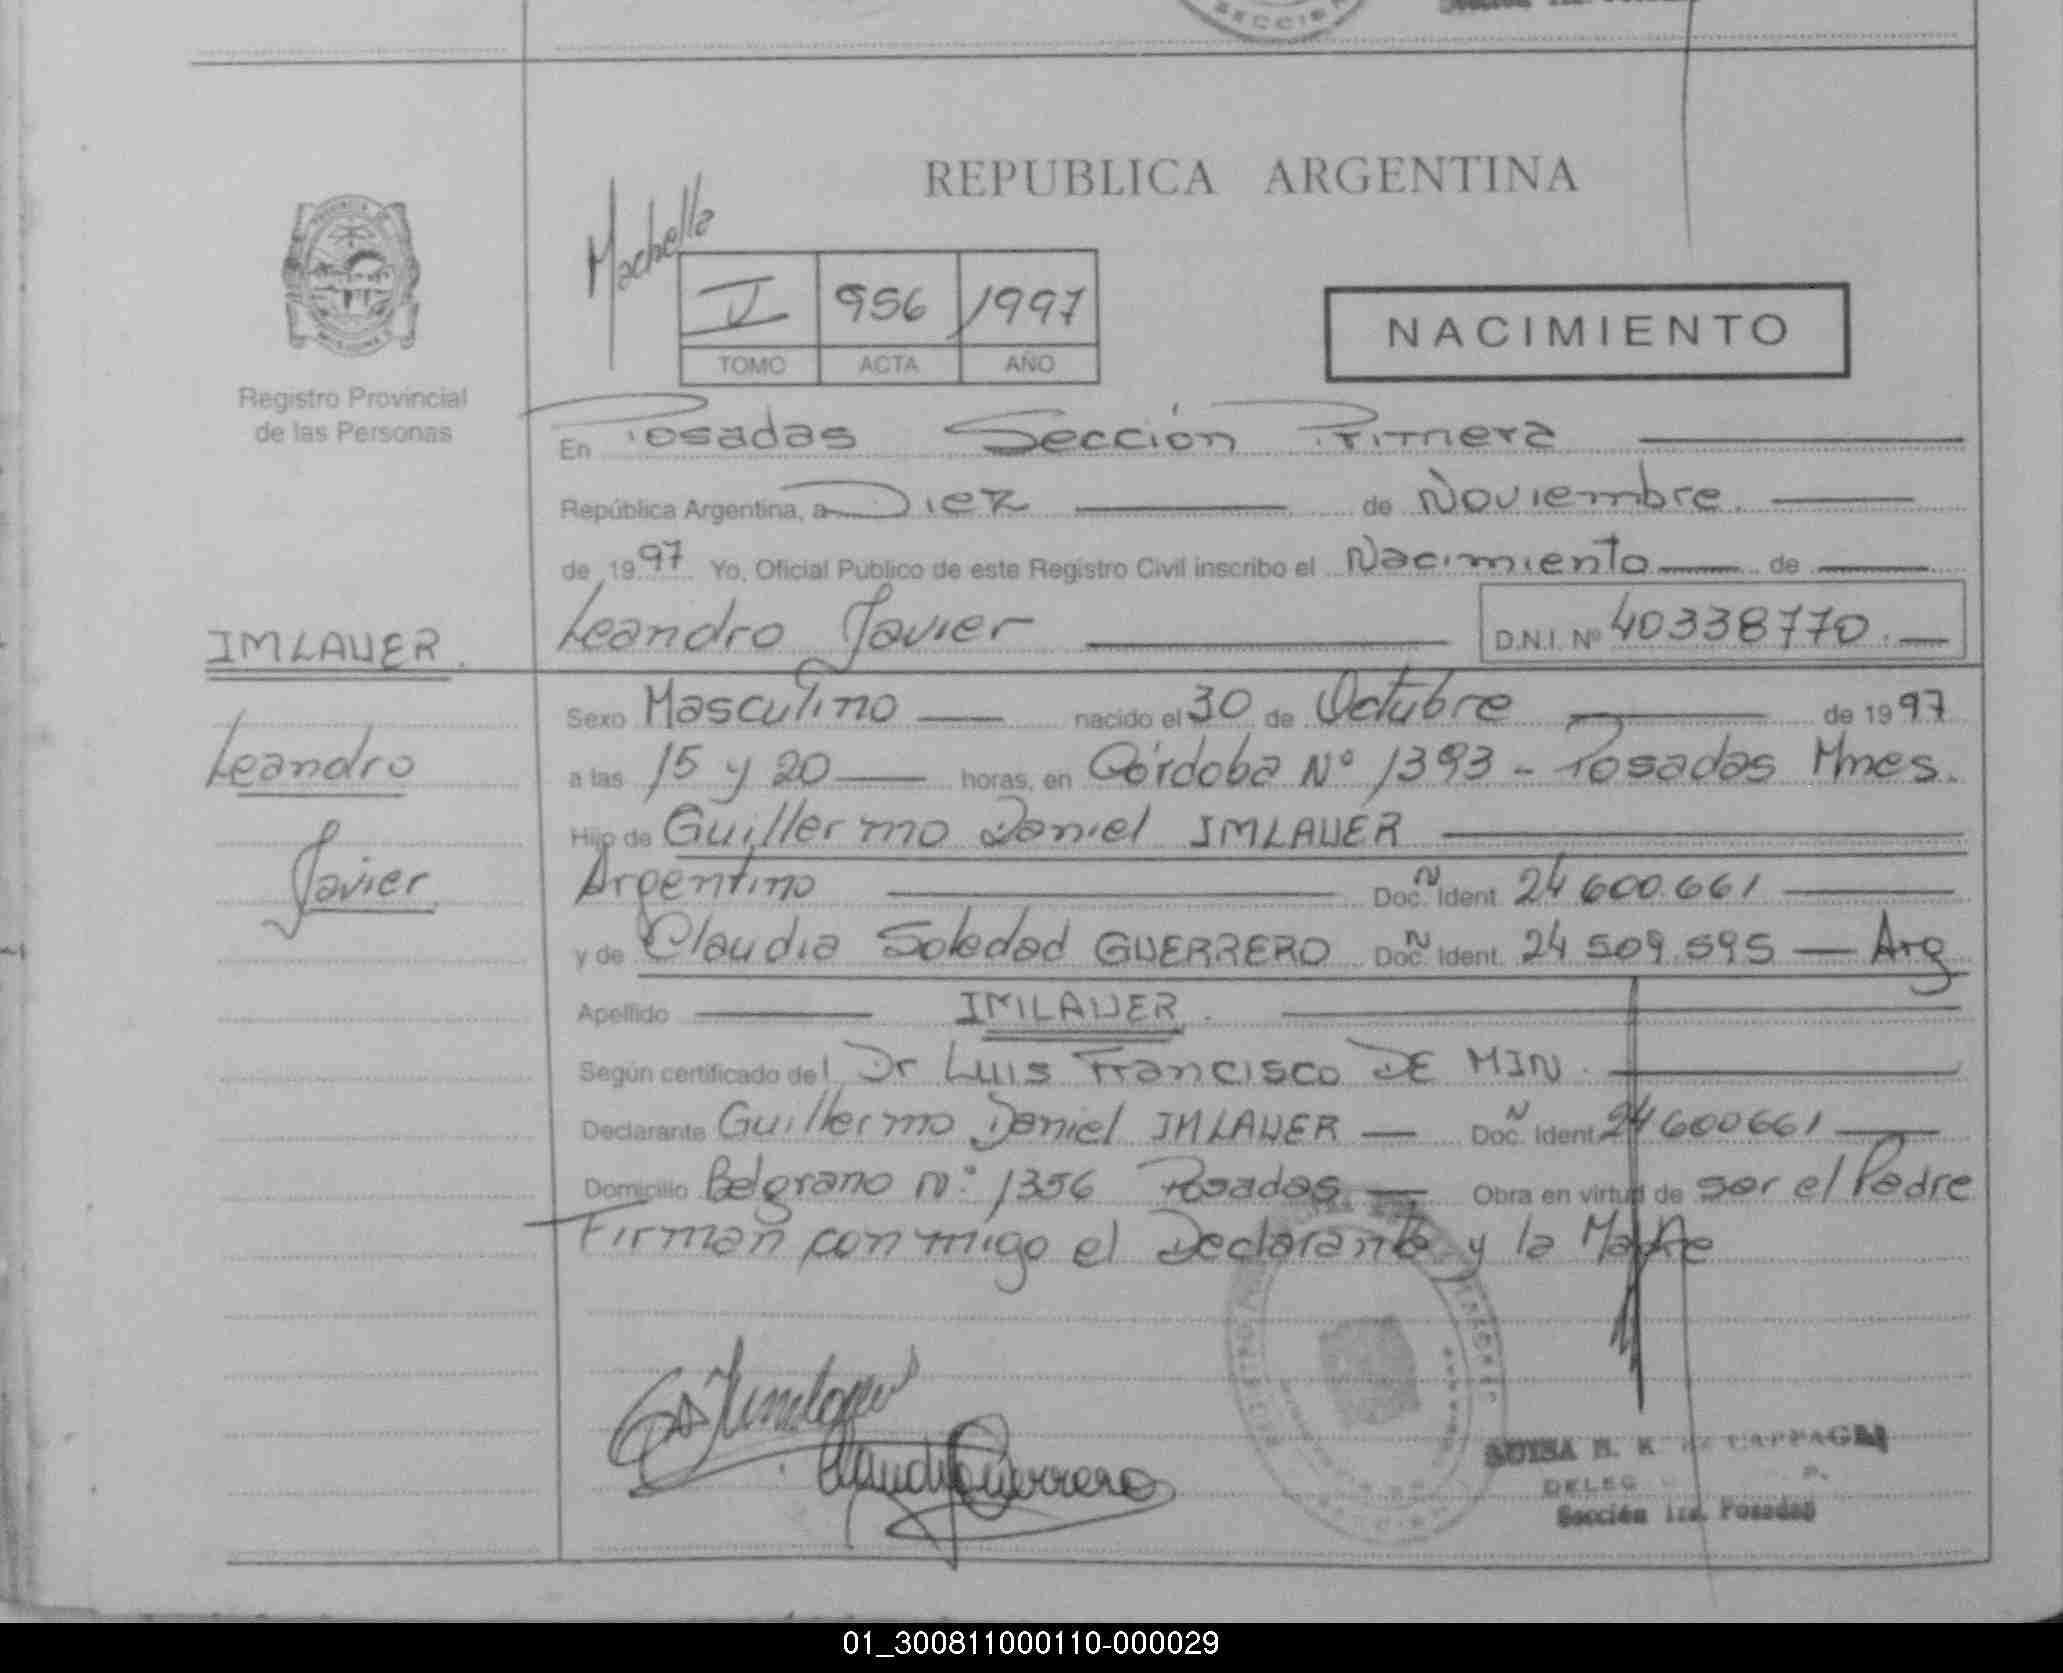 SECCION
REPUBLICA ARGENTINA
Machella
956 1997
TOMO ACTA AÑO
NACIMIENTO
Registro Provincial
de las Personas
En Posadas Sección Primera
República Argentina, a Diez de Noviembre.
de 1997 Yo, Oficial Público de este Registro Civil inscribo el Nacimiento de
IMLAUER.
Leandro Javier D.N.I. Nº 40338770.
Sexo Masculino nacido el 30 de Octubre de 1997
Leandro
a las 15 y 20 horas, en Córdoba Nº 1393 - Posadas Mnes.
Hijo de Guillermo Daniel IMLAUER
Javier
Argentino Doc. N Ident. 24 600.661
y de Claudia Soledad GUERRERO Doc. N Ident. 24 509.595 — Arg
Apellido IMLAUER.
Según certificado del Dr Luis Francisco DE MIN.
Declarante Guillermo Daniel IMLAUER — Doc. N Ident. 24600661
Domicilio Belgrano Nº 1356 Posadas — Obra en virtud de ser el Padre
Firman con migo el Declarante y la Madre
Claudia Guerrero
DELEG
Sección 1ra. Posadas
01_300811000110-000029